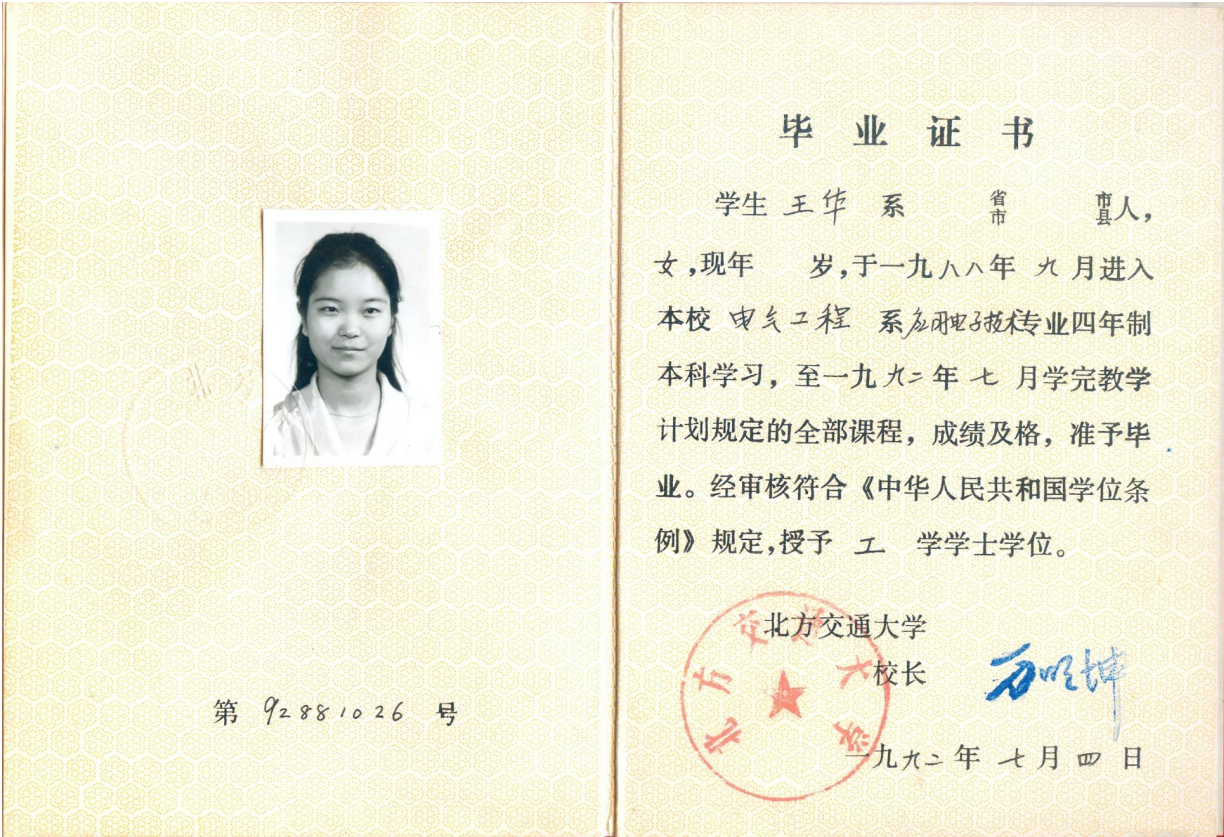 第 92881026 号
毕业证书
学生 王华 系 省市 市县人,
女,现年 岁,于一九八八年 九 月进入
本校 电气工程 系应用电子技术专业四年制
本科学习，至一九九二年 七 月学完教学
计划规定的全部课程，成绩及格，准予毕
业。经审核符合《中华人民共和国学位条
例》规定,授予 工 学学士学位。
北方交通大学
校长 万明坤
一九九二年 七月 四 日
北方交通大学